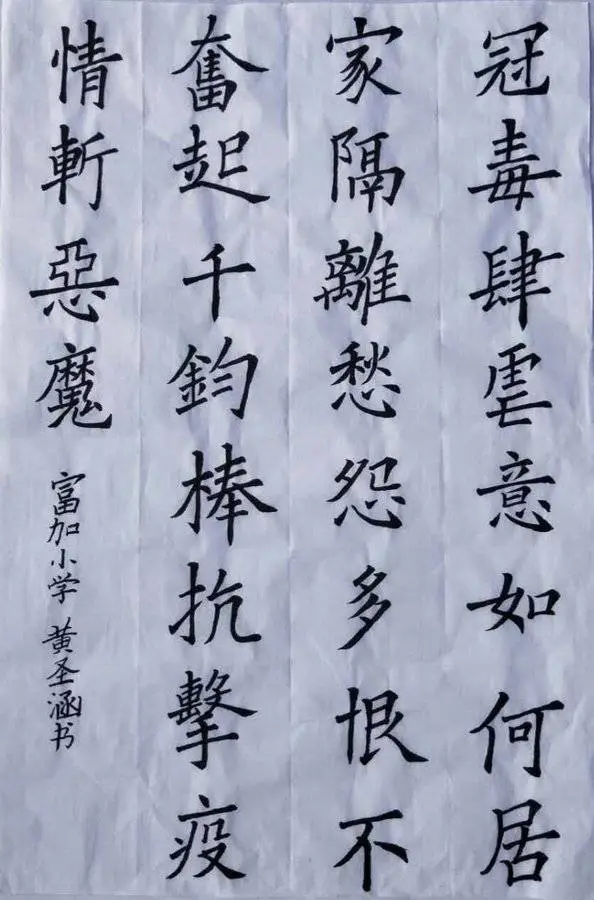 冠毒肆虐意如何居
家隔離愁怨多恨不
奮起千鈞棒抗擊疫
情斬惡魔
富加小学 黄圣涵书